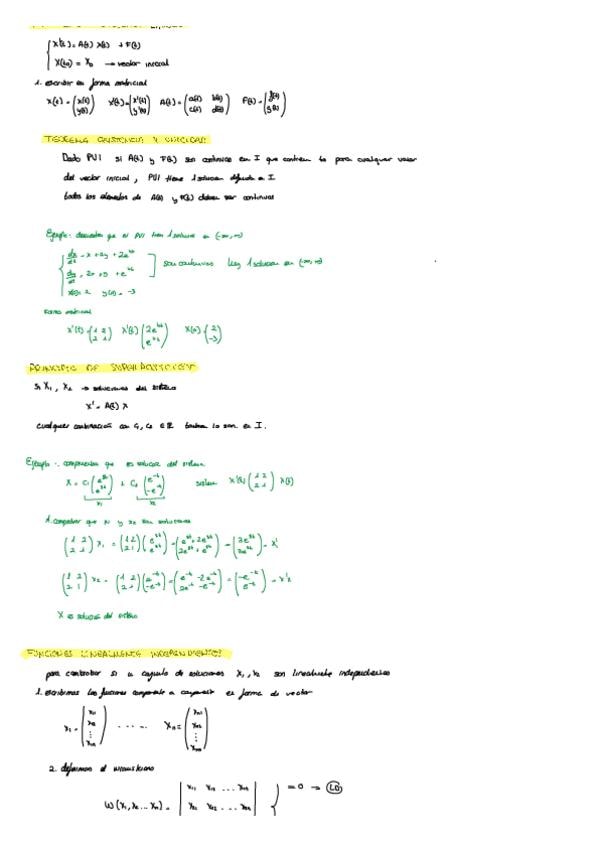 X'(t) = A(t) X(t) + F(t)
X(t0) = X0 → vector inicial
1. escribir en forma matricial
X(t) = (x(t) y(t)) X'(t) = (x'(t) y'(t)) A(t) = (a(t) b(t) c(t) d(t)) F(t) = (f(t) g(t))
TEOREMA EXISTENCIA Y UNICIDAD
Dado PVI si A(t) y F(t) son continuas en I que contiene t0 para cualquier valor
del vector inicial, PVI tiene 1 solucion definida en I.
todos los elementos de A(t) y F(t) deben ser continuas
Ejemplo: el PVI tiene 1 solucion en (-∞,∞)
dx/dt = x + 2y + 2e
dy/dt = 2x + y + e
x(0) = 2 y(0) = -3
son continuas hay 1 solucion en (-∞,∞)
Forma matricial
X'(t) = (1 2 2 1) X(t) X(0) = (2 -3)
PRINCIPIO DE SUPERPOSICION
Si X1, X2 → soluciones del sistema
X' = A(t) X
cualquier combinación con C1, C2 ∈ R tambien lo son en I.
Ejemplo: comprueba que es solucion del sistema
X = C1 (e^3t e^3t) + C2 (e^-t -e^-t) sistema X'(t) = (1 2 2 1) X(t)
x1 x2
1. comprobar que x1 y x2 son soluciones
(1 2 2 1) x1 = (1 2 2 1) (e^3t e^3t) = (e^3t + 2e^3t 2e^3t + e^3t) = (3e^3t 3e^3t) = x'1
(1 2 2 1) x2 = (1 2 2 1) (e^-t -e^-t) = (e^-t - 2e^-t 2e^-t - e^-t) = (-e^-t e^-t) = x'2
X es solucion del sistema
FUNCIONES LINEALMENTE INDEPENDIENTES
para controlar si un conjunto de soluciones X1, X2 son linealmente independientes
1. escribimos las funciones componente a componente en forma de vector
X1 = (x11 x12 ⋮ x1n) ..... Xn = (xn1 xn2 ⋮ xnn)
2. definimos el wronskiano
W(X1, X2 ... Xn) = | x11 x12 ... x1n | = 0 → LD
x21 x22 ... x2n